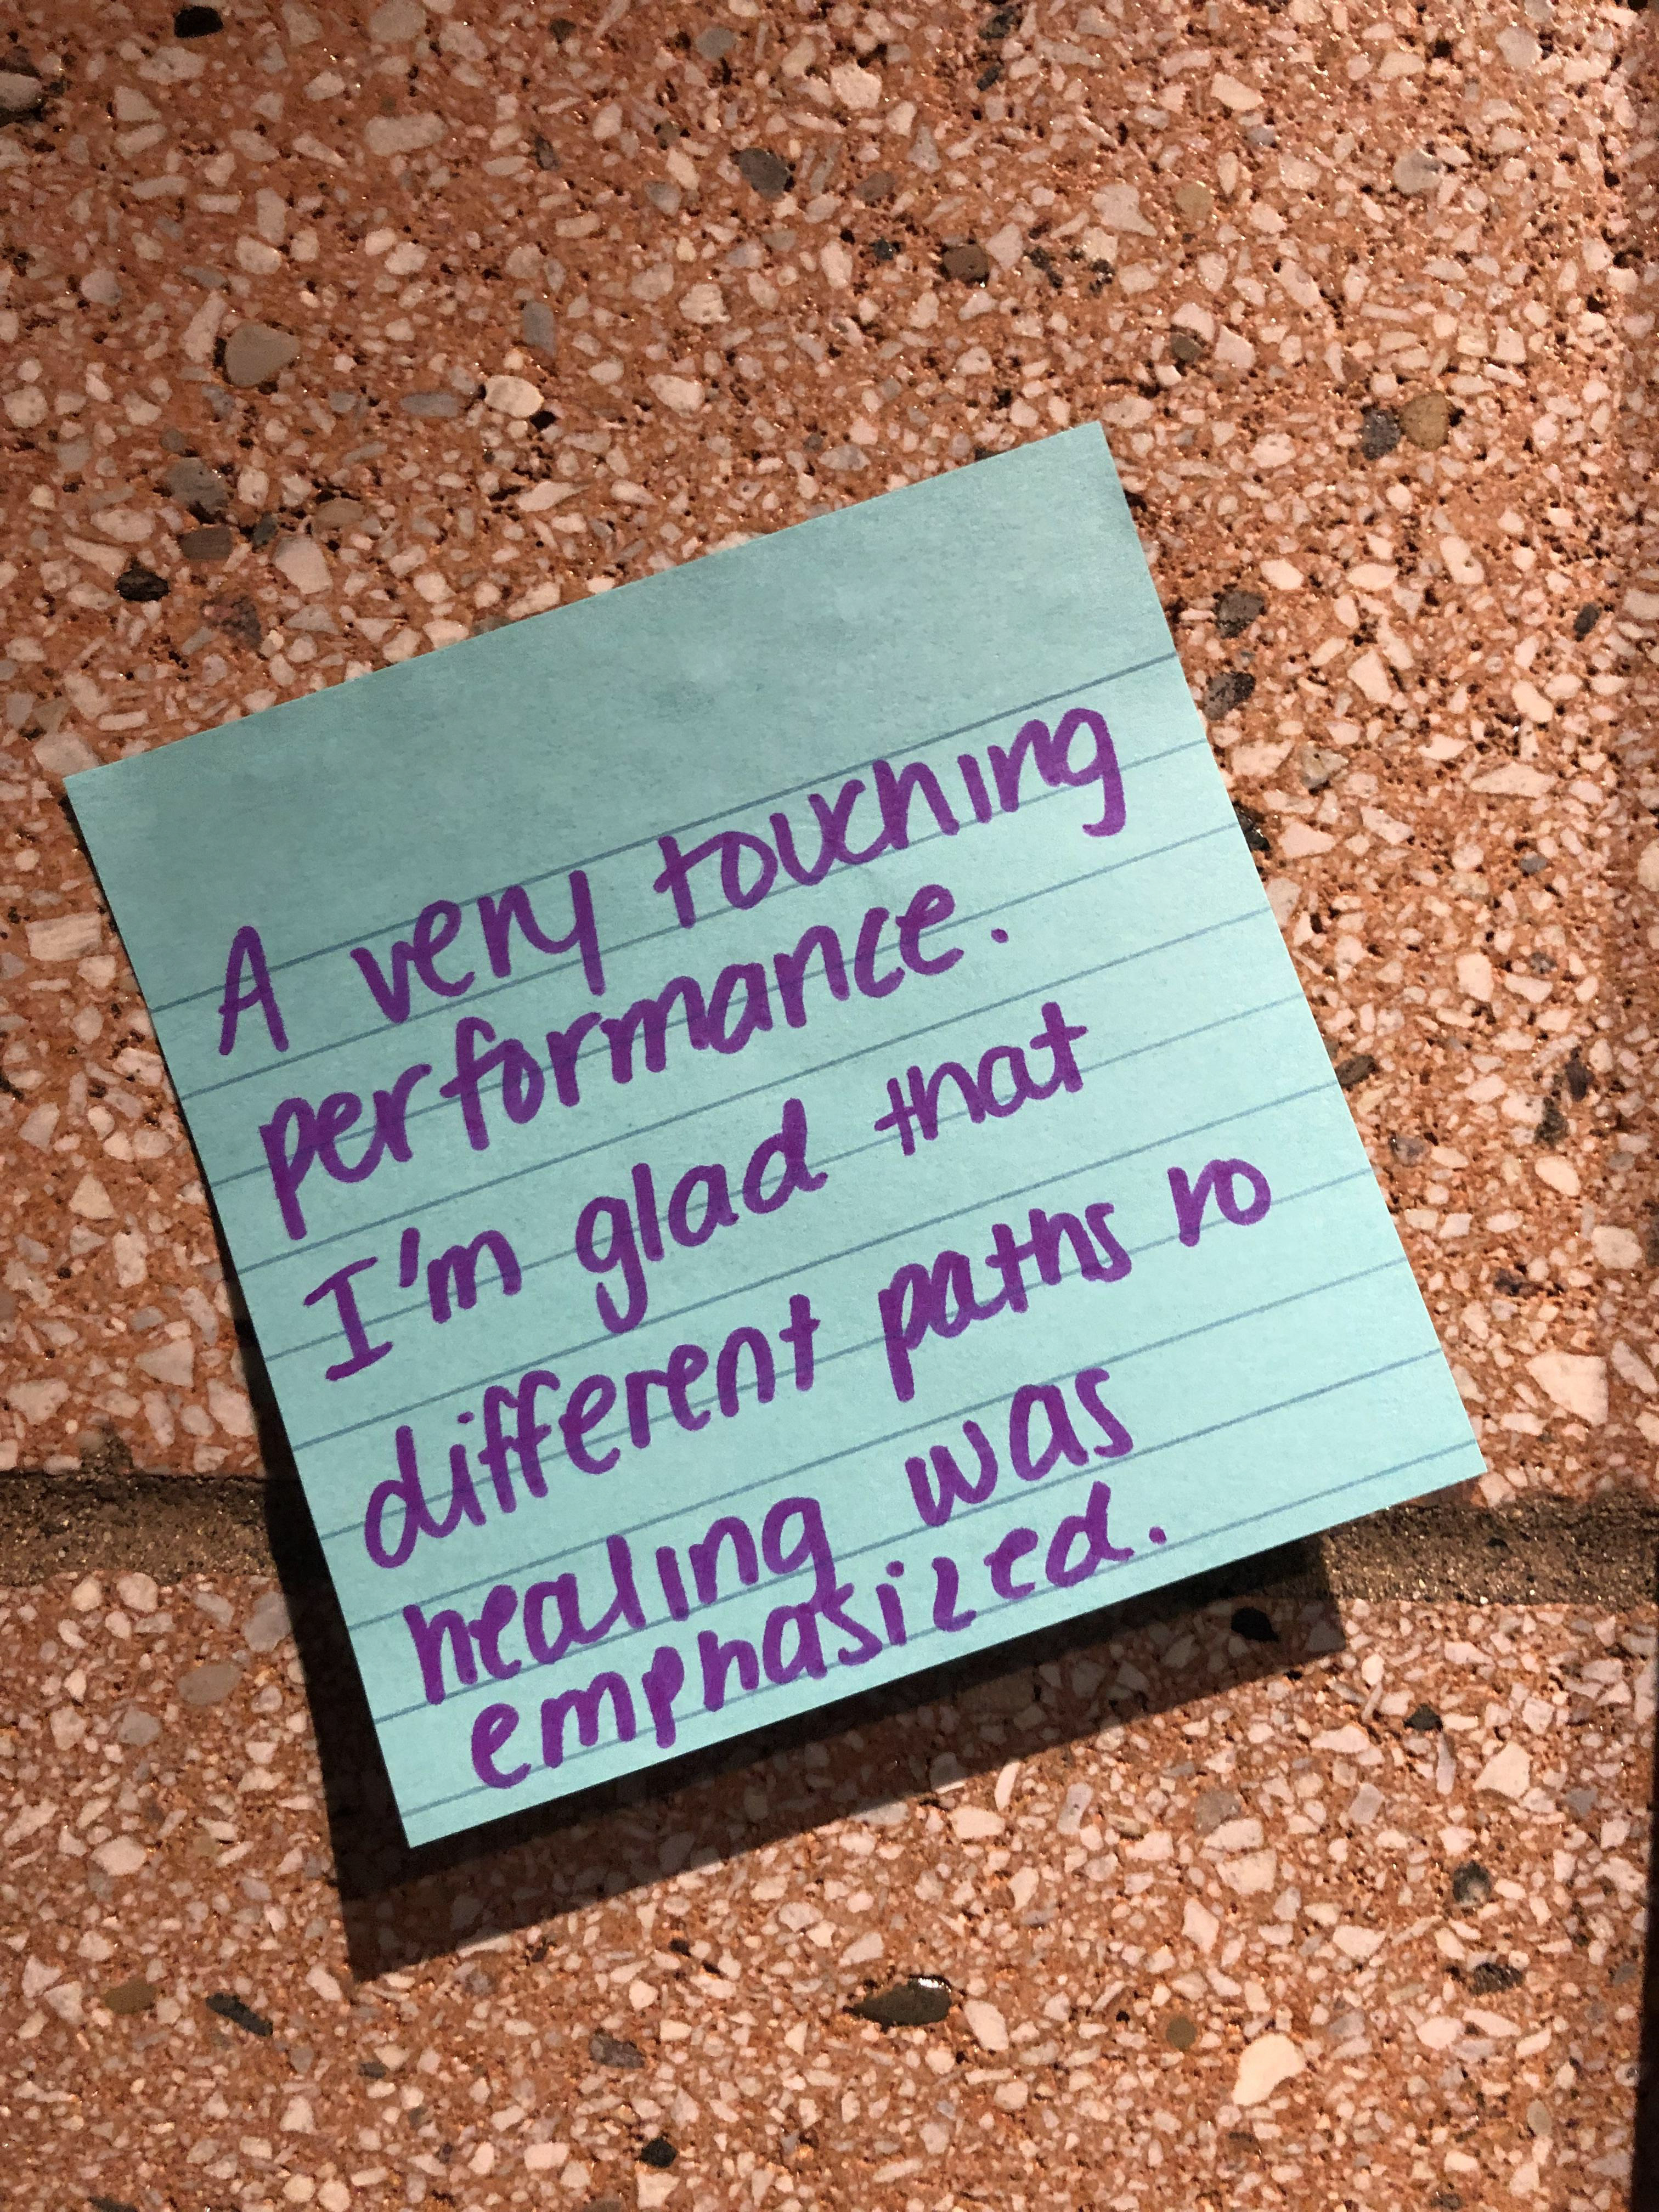 A very touching
performance.
I'm glad that
different paths to
healing was
emphasized.